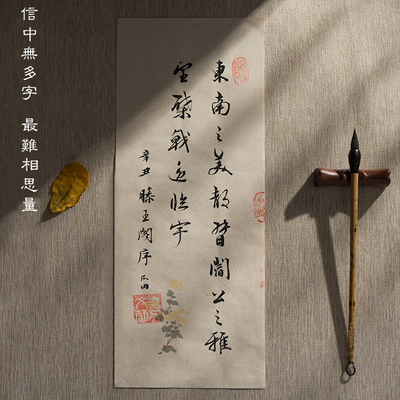 東南之美都督閻公之雅
望棨戟遥临宇
辛丑 滕王閣序
信中無多字 最難相思量